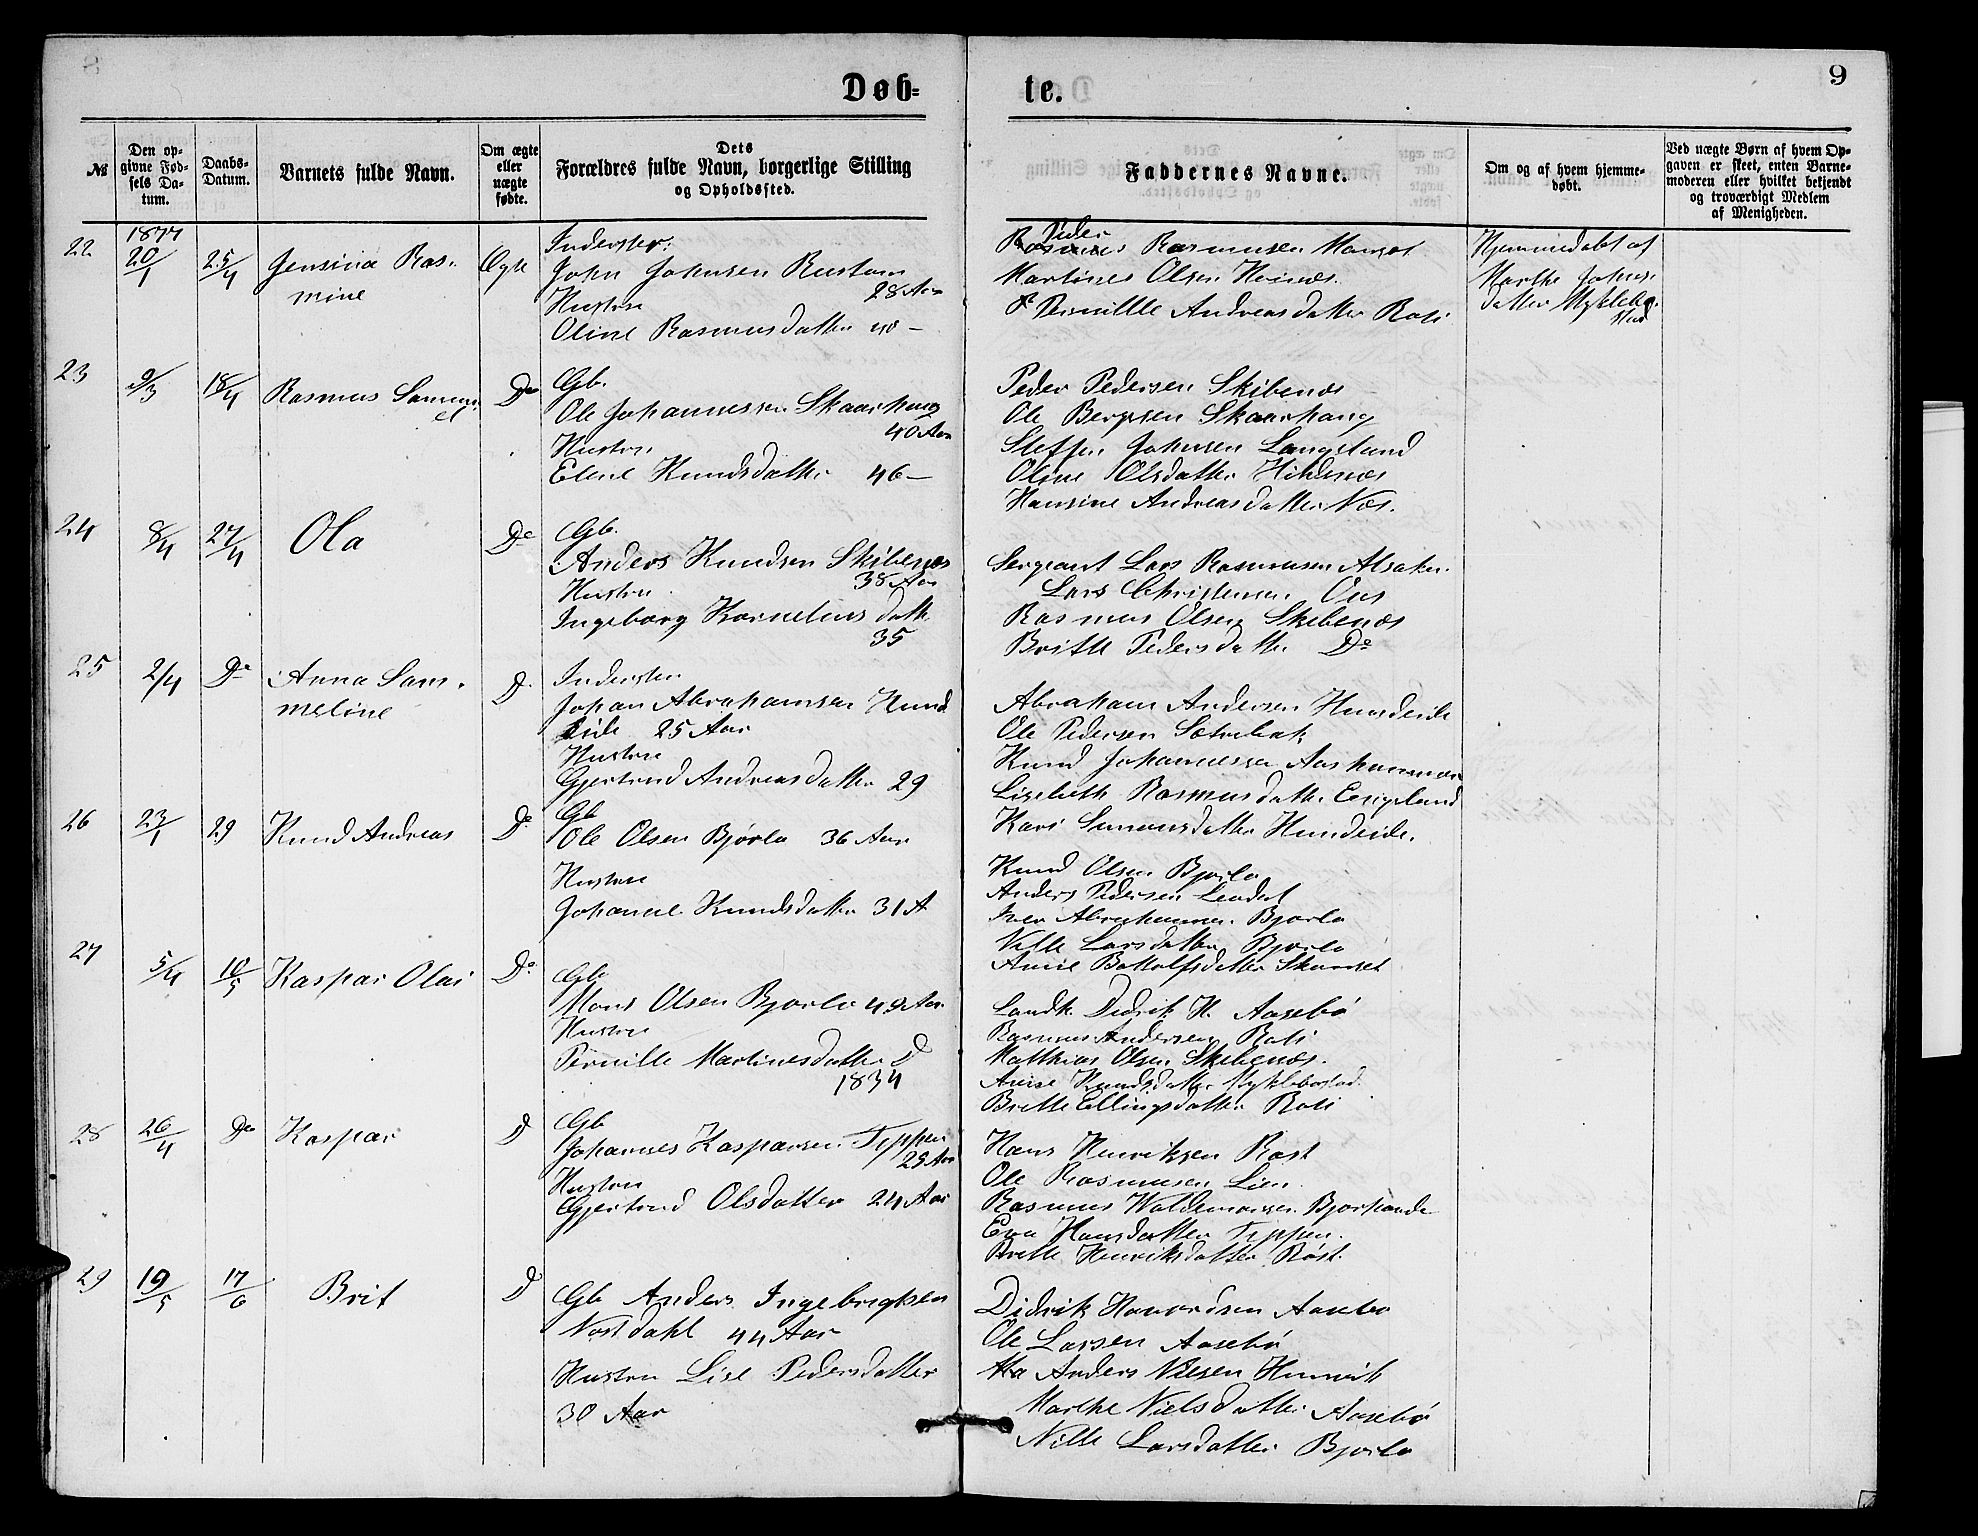 8
9
Døb-
te.
№
Den op-
givne Fød-
sels Da-
tum.
Daabs-
Datum.
Barnets fulde Navn.
Om ægte
eller
uægte
fødte.
Dets
Forældres fulde Navn, borgerlige Stilling
og Opholdssted.
Faddernes Navne.
Om og af hvem hjemme-
døbt.
Ved uægte Børn af hvem Op-
gaven er skeet, enten Barne-
moderen eller hvilket bekjendt
og troværdigt Medlem
af Menigheden.
1877
22 20/1 25/4 Jensine Ras-
mine
Ægte
Inderster.
John Johnsen Rustøen
28 Aar
Hustru
Oline Rasmusdatter 40 –
Peder
Rasmus Rasmusen
Martines Olsen
Pernille Andreasdatter Roti
Hjemmedøbt af
Marthe Johns-
datter Myklebo-
stad
23 9/3 18/4 Rasmus Samu-
el
Do
Gb.
Ole Johannessen Skaarhaug
40 Aar
Hustru
Elene Knudsdatter 46 –
Peder Pedersen Skibenæs
Ole Bergsen Skaarhaug
Steffen Johnsen Langeland
Oline Olsdatter Hildenæs
Hansine Andreasdatter Næs.
24 8/4 27/4 Ola
Do
Gb.
Anders Knudsen Skibenæs
38 Aar
Hustru
Ingeborg Korneliusdatt
35
Sergeant Lars Rasmusen Alsaker
Lars Christensen Ous
Rasmus Olsen Skibenæs
Britte Pedersdatter Do
25 2/4 Do Anna Sam-
meline
D.
Inderster
Johan Abrahamsen Hund
eide 25 Aar
Hustru
Gjertrud Andreasdatter 29
Abraham Andersen Hundeide
Ole Pedersen Sætrebak
Knud Johannessen Aashammer
Lisebeth Rasmusdatter
Kari Simonsdatter Hundeide.
26 23/1 29 Knud Andreas
Do
Gb
Ole Olsen Bjørlo 36 Aar
Hustru
Johanne Knudsdatter 31 A
Knud Olsen Bjørlo
Anders Pedersen
Iver Abrahamsen Bjørlo
Nille Larsdatter Bjørlo
Anne Botolfsdatter
27 5/4 10/5 Kaspar Olai
Do
Gb
Mons Olsen Bjorlo 49 Aar
Hustru
Pernille Martinesdatter D
1834
Landh. Didrik H. Aasebø
Rasmus Andersen Roti
Matthias Olsen Skibenæs.
Anne Knudsdatter Myklebostad.
Britte Ellingsdatter Roti
28 26/4 Do Kaspar
D
Gb
Johannes Kasparsen Tippen
25 Aar
Hustru
Gjertrud Olsdatter 24 Aar
Hans Henriksen Røst
Ole Rasmusen Lien
Rasmus Woldemarsen
Eva Hansdatter Tippen.
Britte Henriksdatter Røst.
29 19/5 17/6 Brit
D
Gb Anders Ingebrigtsen
Nordahl 44 Aar
Hustru Lise Pedersdatter
30 Aar
Didrik Haavardsen Aasebo
Ole Larsen Aasebø
Anders Nilsen Hennevik
Marthe Nielsdatter Aasebø
Nille Larsdatter Bjorlo